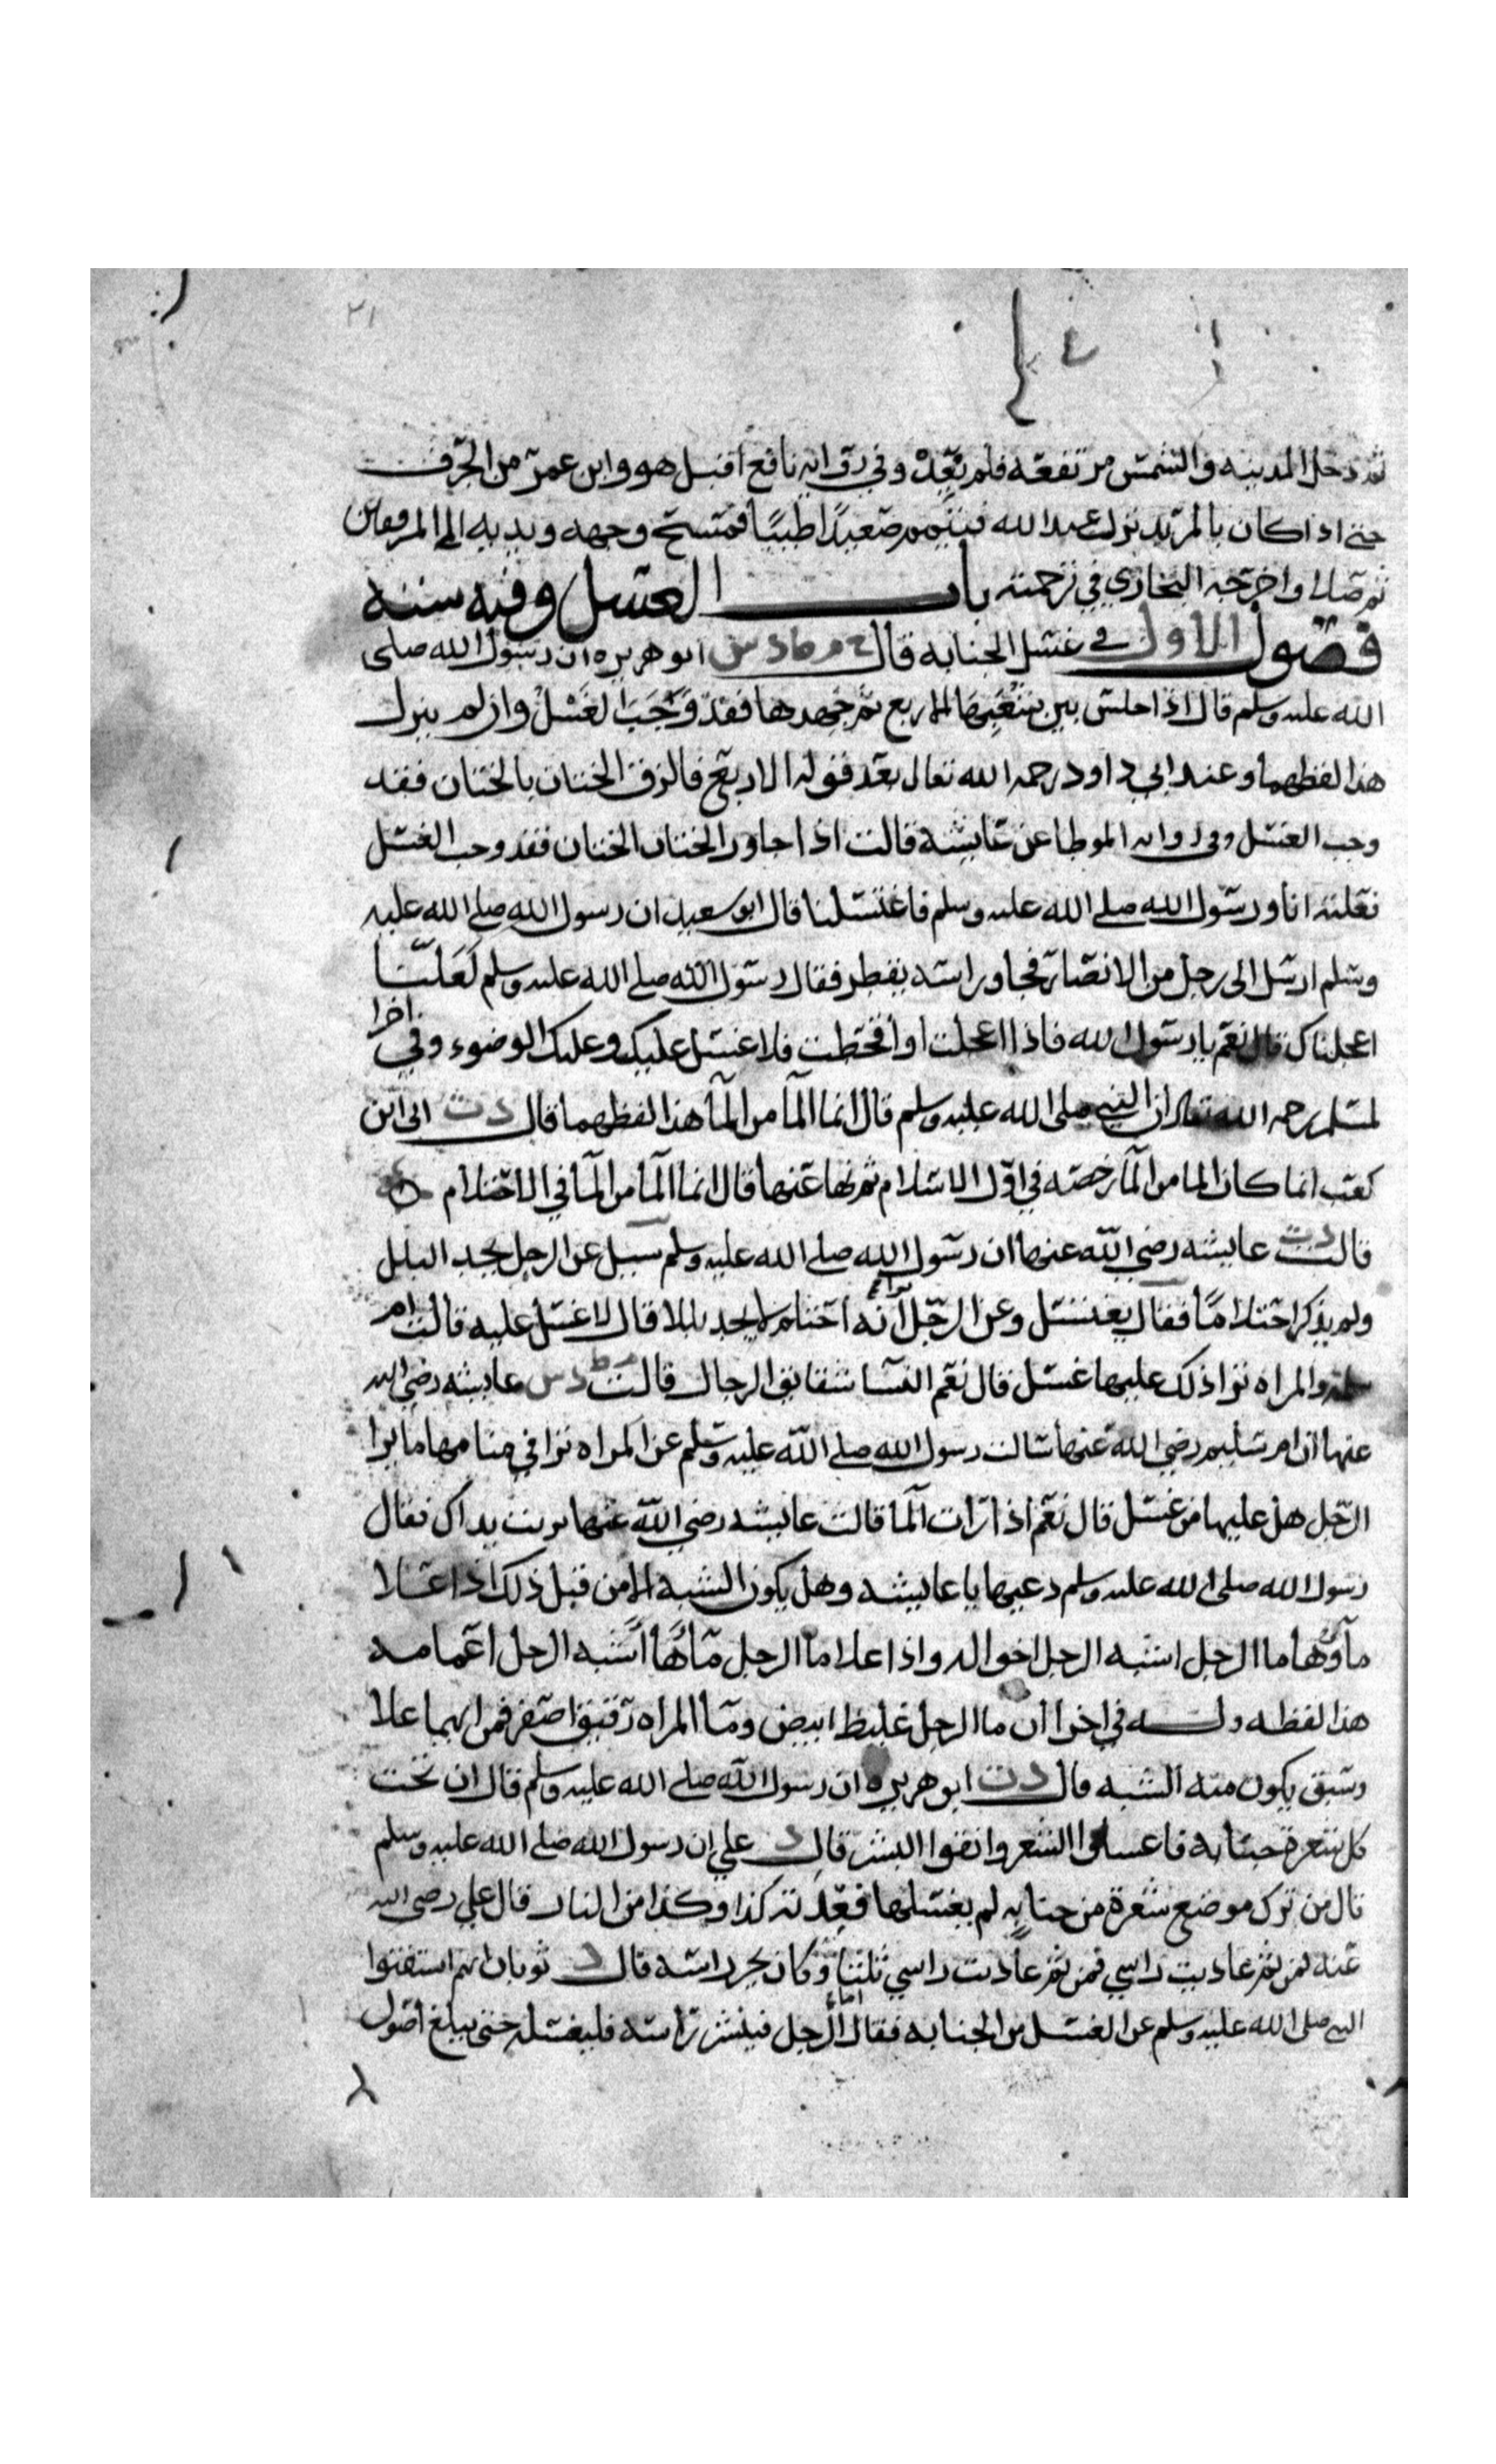 ٢١
ثم دخل المدينه والشمس مرتفعه فلم يعد وفي روايه نافع اقبل هو وابن عمر من الجرف
حتى اذا كان بالمربد نزل عبد الله فيتمم صعيدا طيبا فمسح وجهه ويديه الى المرفقين
ثم صلا واخرجه البخاري في ترجمته باب الغسل وفيه سته
فصول الاول في غسل الجنابه قال خ م ط د س ابو هريره ان رسول الله صلى
الله عليه وسلم قال اذا جلس بين شعبها الاربع ثم جهدها فقد وجب الغسل وان لم ينزل
هذا لفظهما وعند ابي داود رحمه الله تعالى بعد قوله الاربع فالزق الختان بالختان فقد
وجب الغسل وفي روايه الموطا عن عايشه قالت اذا جاوز الختان الختان فقد وجب الغسل
فعلته انا ورسول الله صلى الله عليه وسلم فاغتسلنا قال ابو سعيد ان رسول الله صلى الله عليه
وسلم ارسل الى رجل من الانصار فجا وراسه يقطر فقال رسول الله صلى الله عليه وسلم لعلنا
اعجلناك قال نعم يا رسول الله فاذا اعجلت او اقحطت فلا غسل عليك وعليك الوضوء وفي اخرا
لمسلم رحمه الله تعالى ان النبي صلى الله عليه وسلم قال انما الما من الما هذا لفظهما قال د ت ابي ابن
كعب انما كان الما من الما رخصه في اول الاسلام ثم نها عنها قال انما الما من الما في الاحتلام
قالت د ت عايشه رضي الله عنها ان رسول الله صلى الله عليه وسلم سيل عن الرجل يجد البلل
ولم يذكر احتلاما فقال يغتسل وعن الرجل انه احتلم لم يجد بللا قال لا غسل عليه قالت ام
سلمه والمراه ترا ذلك عليها غسل قال نعم النسا شقايق الرجال قالت م ط د س عايشه رضي الله
عنها ان ام سليم رضي الله عنها سالت رسول الله صلى الله عليه وسلم عن المراه ترا في منامها ما يرا
الرجل هل عليها من غسل قال نعم اذا رات الما قالت عايشه رضي الله عنها تربت يداك فقال
رسول الله صلى الله عليه وسلم دعيها يا عايشه وهل يكون الشبه الا من قبل ذلك اذا علا
ماؤها ما الرجل اشبه الرجل اخواله واذا علا ما الرجل ماها اشبه الرجل اعمامه
هذا لفظه وله في اخرا ان ما الرجل غليظ ابيض وما المراه رقيق اصفر فمن ايهما علا
وسبق يكون منه الشبه قال د ت ابو هريره ان رسول الله صلى الله عليه وسلم قال ان تحت
كل شعرة جنابه فاغسلوا الشعر وانقوا البشر قال د علي ان رسول الله صلى الله عليه وسلم
قال من ترك موضع شعرة من جنابه لم يغسلها فعل به كذا وكذا من النار قال علي رضي الله
عنه فمن ثم عاديت راسي فمن ثم عاديت راسي ثلثا وكان يجز راسه قال د ثوبان انهم استفتوا
النبي صلى الله عليه وسلم عن الغسل من الجنابه فقال اما الرجل فينشر راسه فليغسله حتى يبلغ اصول